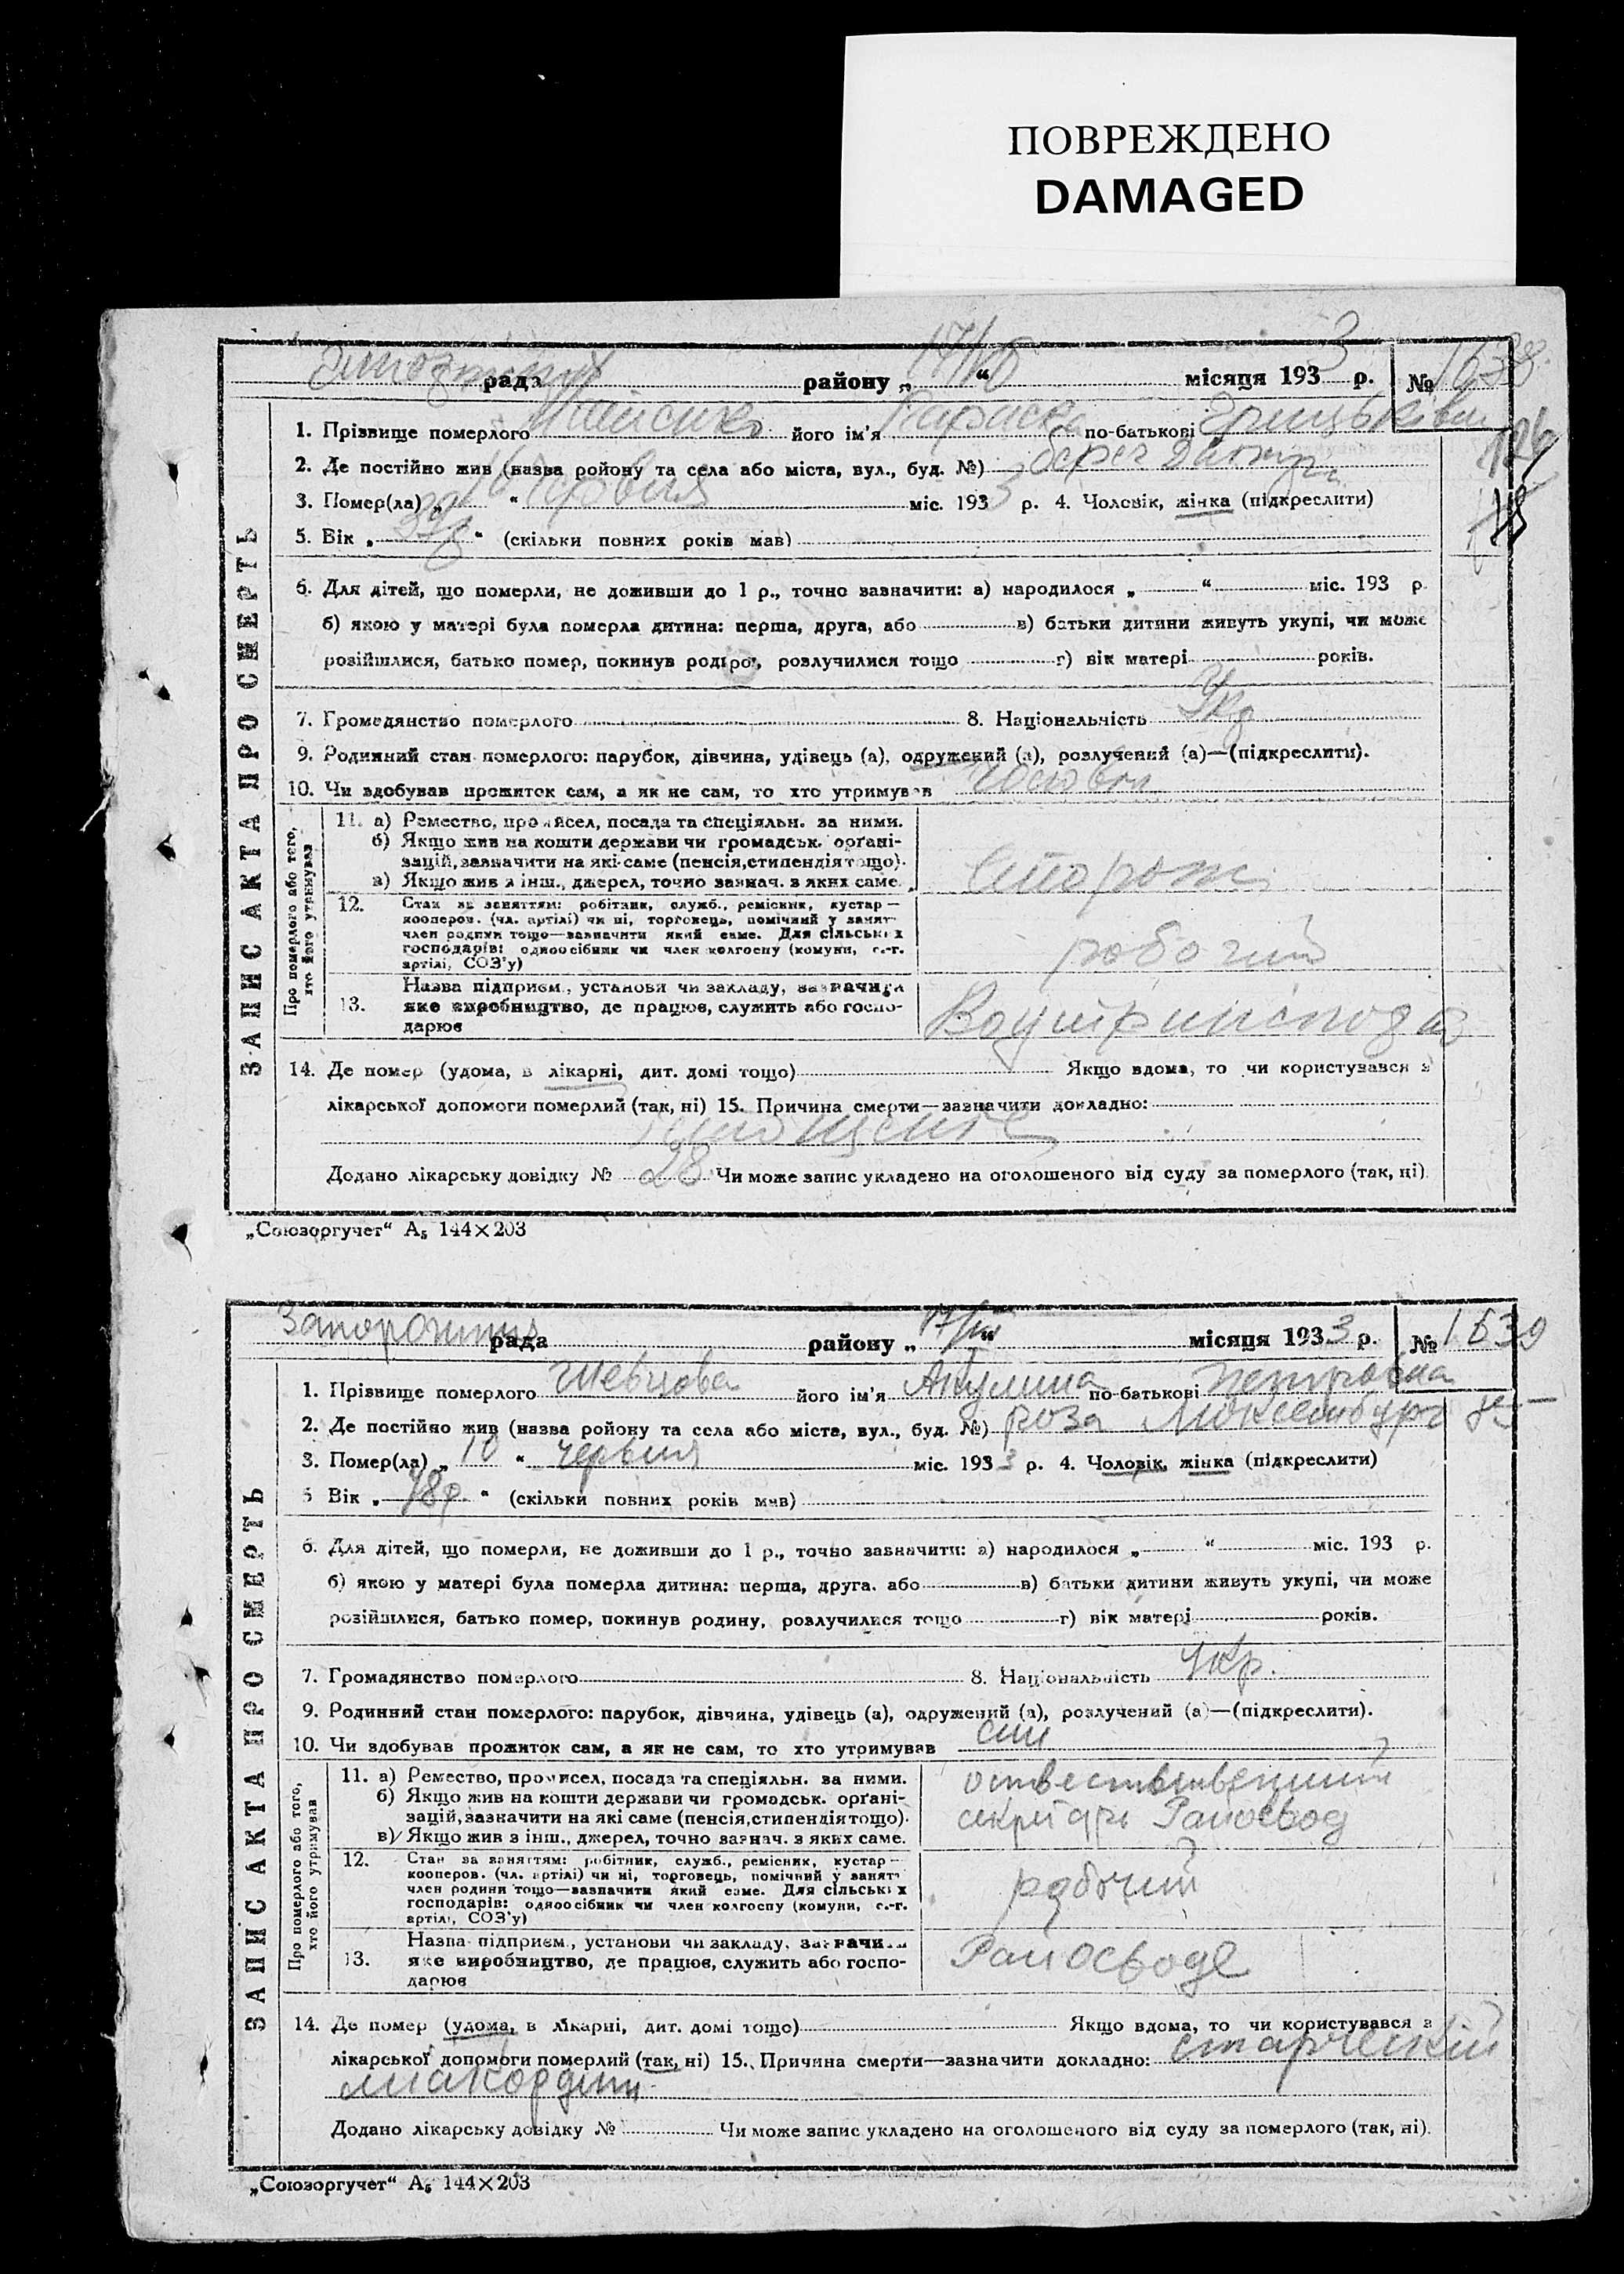 ПОВРЕЖДЕНО
DAMAGED
рада району „17/VI“ місяця 1933 р. № 1638
1. Прізвище померлого його ім'я Параска по-батькові Грицьківн
2. Де постійно жив (назва ройону та села або міста, вул., буд. №) берег Дніпра
3. Помер(ла) „16“ червня міс. 1933 р. 4. Чоловік, жінка (підкреслити)
5. Вік „ “ (скільки повних років мав)
6. Для дітей, що померли, не доживши до 1 р., точно зазначити: а) народилося „ “ міс. 193 р.
б) якою у матері була померла дитина: перша, друга, або в) батьки дитини живуть укупі, чи може
розійшлися, батько помер, покинув родину, розлучилися тощо г) вік матері років.
7. Громадянство померлого 8. Національність Укр
9. Родинний стан померлого: парубок, дівчина, удівець (а), одружений (а), розлучений (а)—(підкреслити).
10. Чи здобував прожиток сам, а як не сам, то хто утримував
ЗАПИС АКТА ПРО СМЕРТЬ
Про померлого або того,
хто його утримував
11. а) Ремество, промисел, посада та спеціяльн. за ними.
б) Якщо жив на кошти держави чи громадськ. орґані-
зацій, зазначити на які саме (пенсія, стипендія тощо).
в) Якщо жив з інш., джерел, точно зазнач. з яких саме.
Сторож
12. Стан за заняттям: робітник, служб., ремісник, кустар—
кооперов. (чл. артілі) чи ні, торговець, помічний у занят
член родини тощо—зазначити який саме. Для сільських
господарів: одноосібник чи член колгоспу (комуни, с.-г.
артілі, СОЗ'у)
робочий
13. Назва підприєм., установи чи закладу, зазначити
яке виробництво, де працює, служить або госпо-
дарює
14. Де помер (удома, в лікарні, дит. домі тощо) Якщо вдома, то чи користувався з
лікарської допомоги померлий (так, ні) 15. Причина смерти—зазначити докладно:
Додано лікарську довідку № 28 Чи може запис укладено на оголошеного від суду за померлого (так, ні)
„Союзоргучет“ А5 144×203
рада району „17/VI“ місяця 1933 р. № 1639
1. Прізвище померлого Шевцова його ім'я Акулина по-батькові Петровна
2. Де постійно жив (назва ройону та села або міста, вул., буд. №) роза Люксембург
3. Помер(ла) „16“ червня міс. 1933 р. 4. Чоловік, жінка (підкреслити)
5 Вік „78р.“ (скільки повних років мав)
6. Для дітей, що померли, не доживши до 1 р., точно зазначити: а) народилося „ “ міс. 193 р.
б) якою у матері була померла дитина: перша, друга. або в) батьки дитини живуть укупі, чи може
розійшлися, батько помер, покинув родину, розлучилися тощо г) вік матері років.
7. Громадянство померлого 8. Національність Укр.
9. Родинний стан померлого: парубок, дівчина, удівець (а), одружений (а), розлучений (а)—(підкреслити).
10. Чи здобував прожиток сам, а як не сам, то хто утримував син
ЗАПИС АКТА ПРО СМЕРТЬ
Про померлого або того,
хто його утримував
11. а) Ремество, промисел, посада та спеціяльн. за ними.
б) Якщо жив на кошти держави чи громадськ. орґані-
зацій, зазначити на які саме (пенсія, стипендія тощо).
в) Якщо жив з інш., джерел, точно зазнач. з яких саме.
секритарь
12. Стан за заняттям: робітник, служб., ремісник, кустар—
кооперов. (чл. артілі) чи ні, торговець, помічний у занят
член родини тощо—зазначити який саме. Для сільських
господарів: одноосібник чи член колгоспу (комуни, с.-г.
артілі, СОЗ'у)
робочий
13. Назва підприєм., установи чи закладу, зазначити
яке виробництво, де працює, служить або госпо-
дарює
14. Де помер (удома, в лікарні, дит. домі тощо) Якщо вдома, то чи користувався з
лікарської допомоги померлий (так, ні) 15. Причина смерти—зазначити докладно: старческий
миакордит
Додано лікарську довідку № Чи може запис укладено на оголошеного від суду за померлого (так, ні).
„Союзоргучет“ А5 144×203